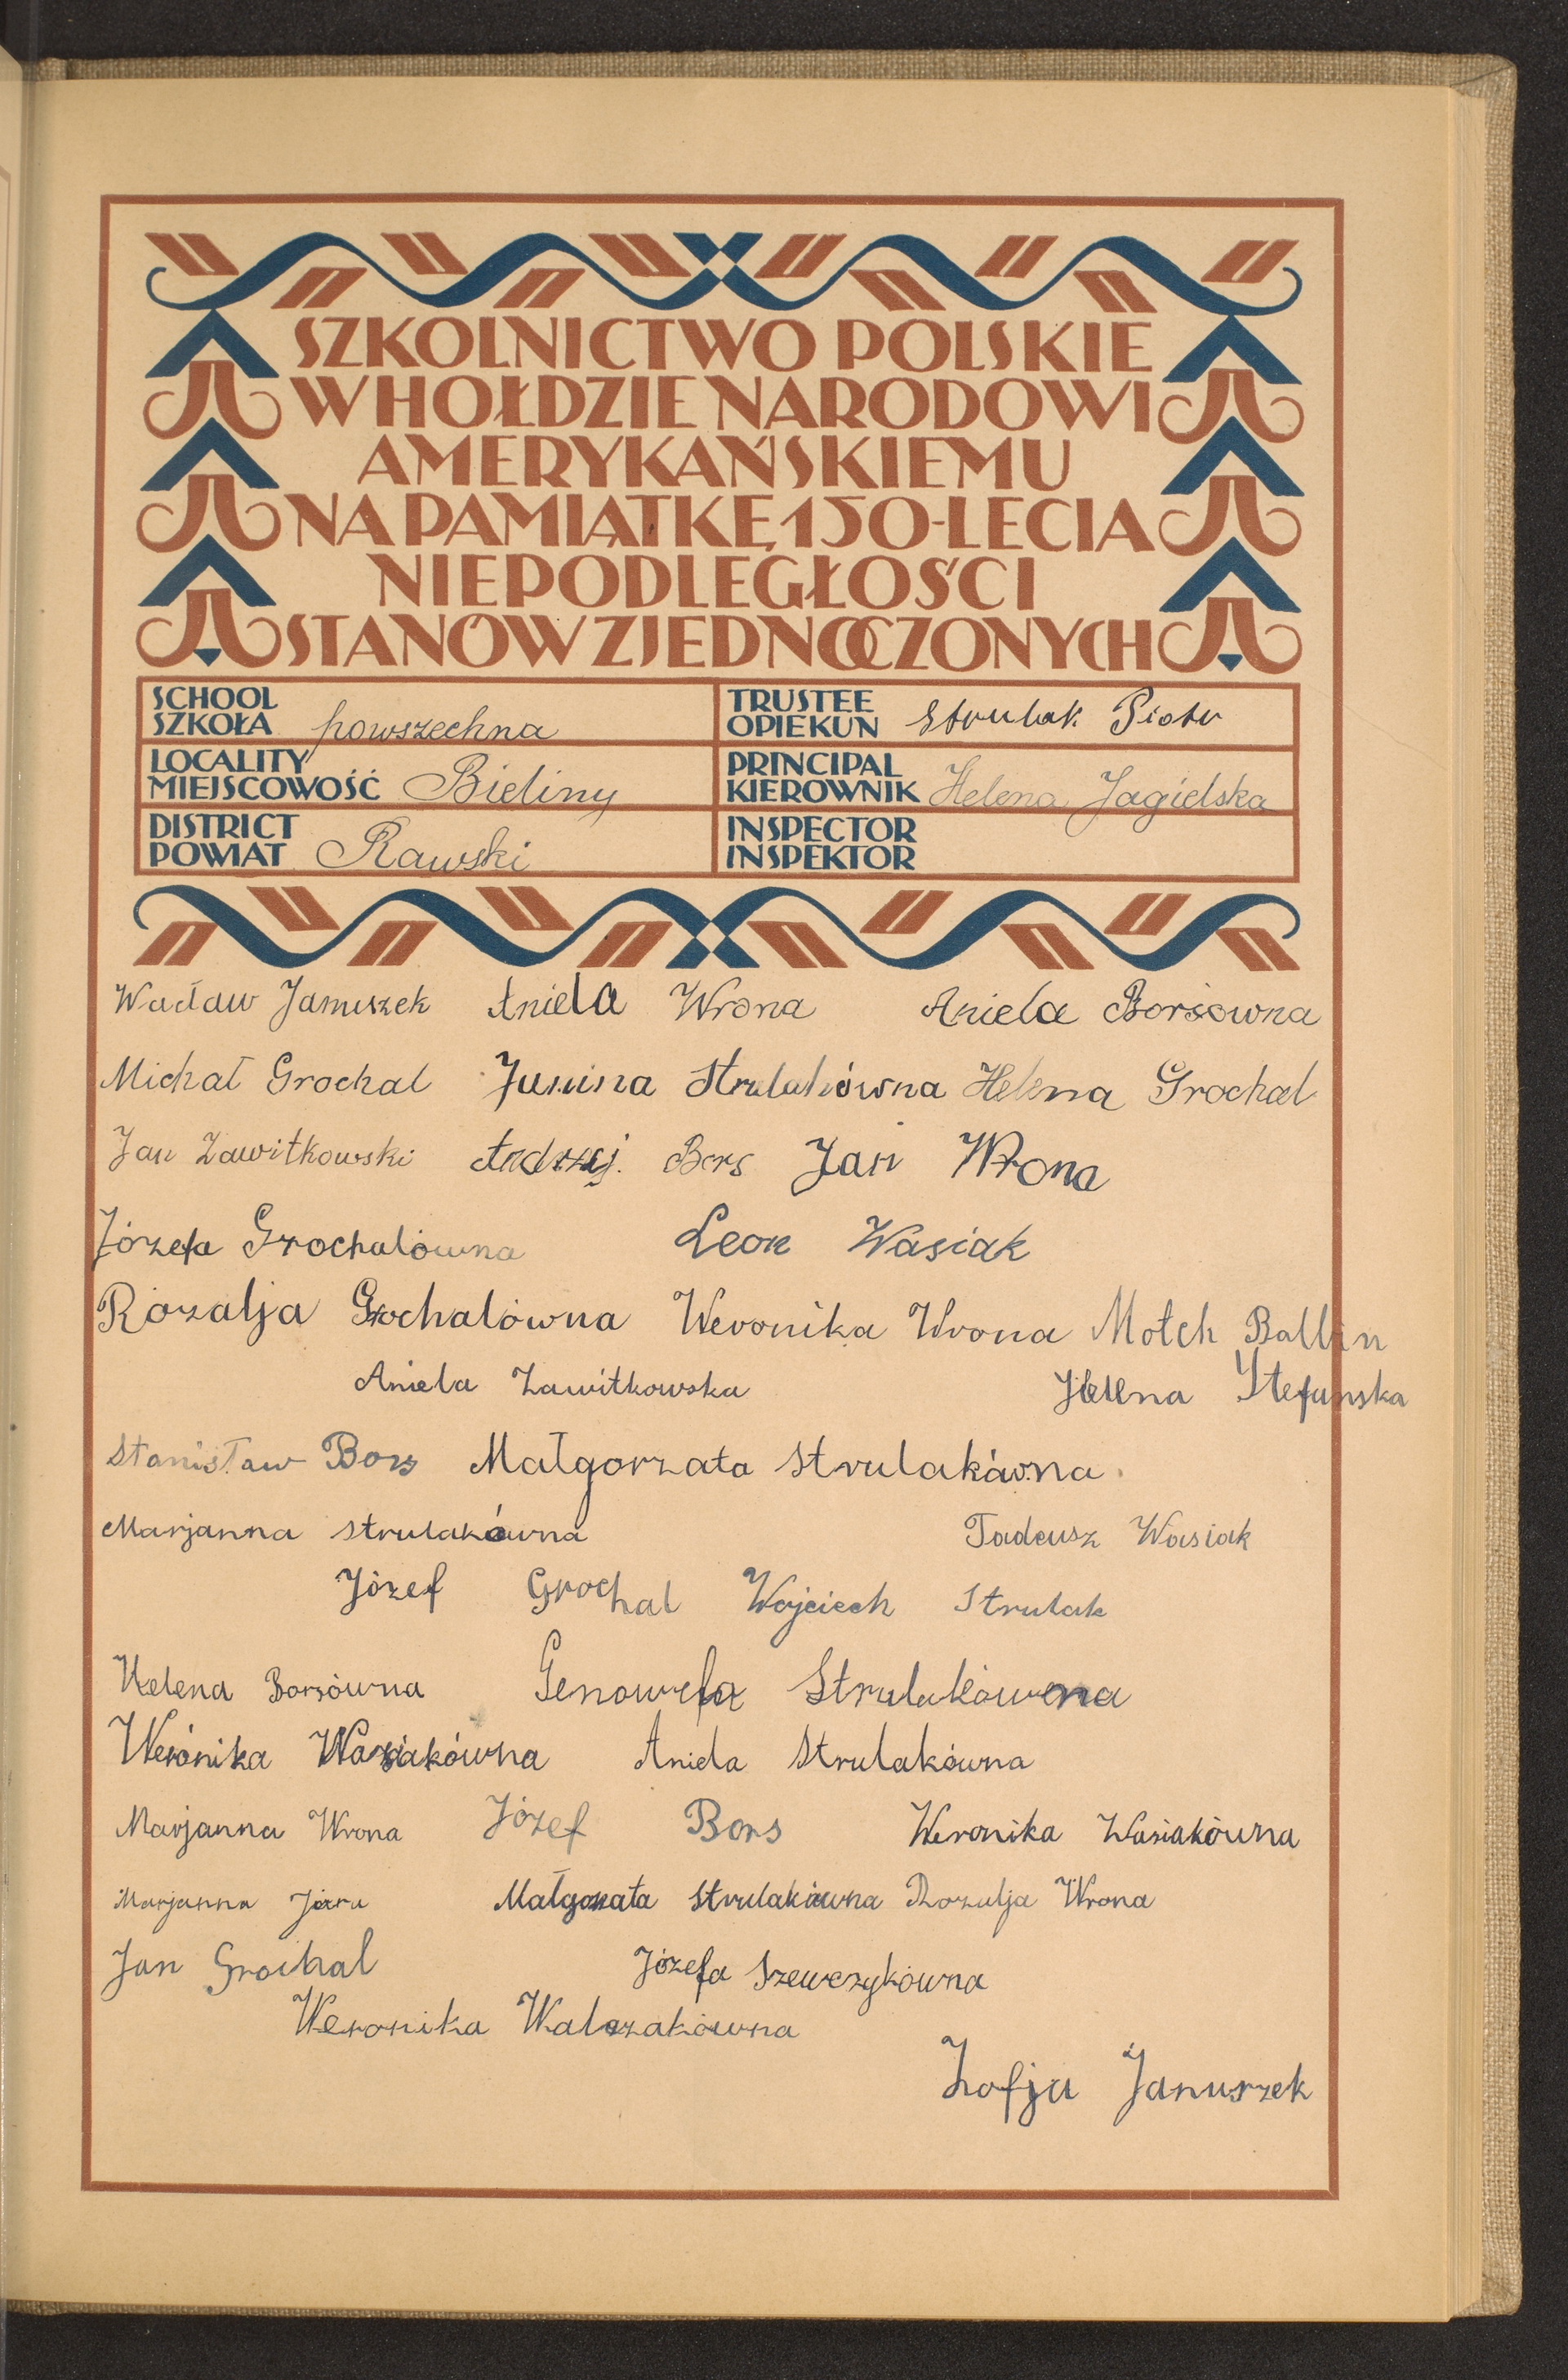 SZKOLNICTWO POLSKIE
W HOŁDZIE NARODOWI
AMERYKAŃSKIEMU
NA PAMIĄTKĘ 150-LECIA
NIEPODLEGŁOŚCI
STANÓW ZJEDNOCZONYCH
SCHOOL
SZKOŁA powszechna
TRUSTEE
OPIEKUN Strulak Piotr
LOCALITY
MIEJSCOWOŚĆ Bieliny
PRINCIPAL
KIEROWNIK Helena Jagielska
DISTRICT
POWIAT Rawski
INSPECTOR
INSPEKTOR
Wacław Januszek Aniela Wrona Aniela Borsówna
Michał Grochal Janina Strulakówna Helena Grochal
Jan Zawitkowski Andrzej Bors Jan Wrona
Józefa Grochalówna Leon Wasiak
Rozalja Grochalówna Weronika Wrona Motch Ballin
Aniela Zawitkowska Helena Stefańska
Stanisław Bors Małgorzata Strulakówna
Marjanna Strulakówna Tadeusz Wasiak
Józef Grochal Wojciech Strulak
Helena Borsówna Genowefa Strulakówna
Weronika Wasiakówna Aniela Strulakówna
Marjanna Wrona Józef Bors Weronika Wasiakówna
Marjanna Jara Małgorzata Strulakówna Rozalja Wrona
Jan Grochal Józefa Szewczykówna
Weronika Walczakówna
Zofja Januszek